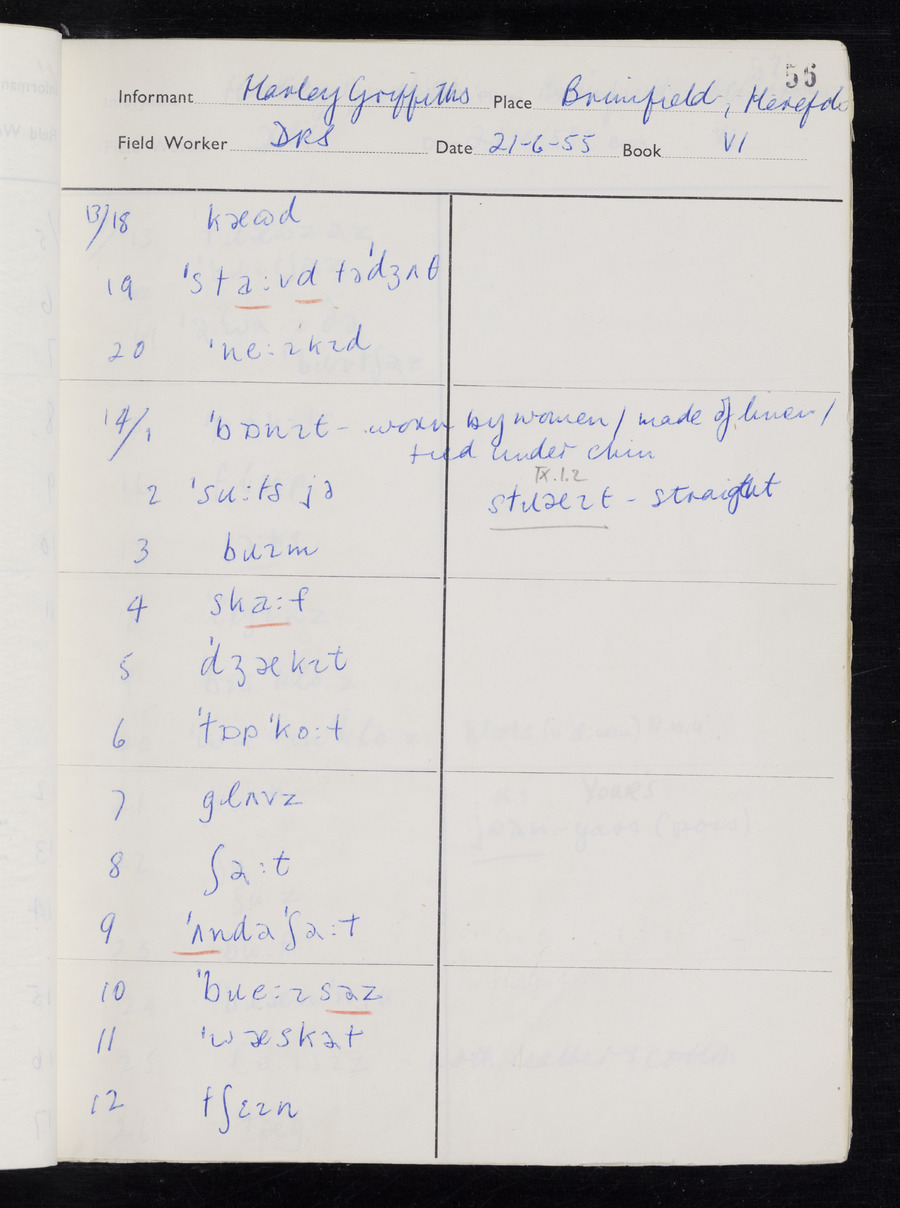 56
Informant Harley Griffiths Place Brimfield, Herefds
Field Worker DRS Date 21-6-55 Book VI
13/18 kæɷd
19 'stə:vd tə'dʒʌθ
20 'ne:ɪkɪd
14/1 'bɒnɪt - worn by women / made of linen /
tied under chin
2 'su:ts jə
IX.1.2
stɹaeɪt - straight
3 bɹɪm
4 skə:f
5 'dʒækɪt
6 'tɒp'ko:t
7 glʌvz
8 ʃə:t
9 'ʌndə'ʃə:t
10 'bɹe:ɪsəz
11 'wæskət
12 tʃɛɪn